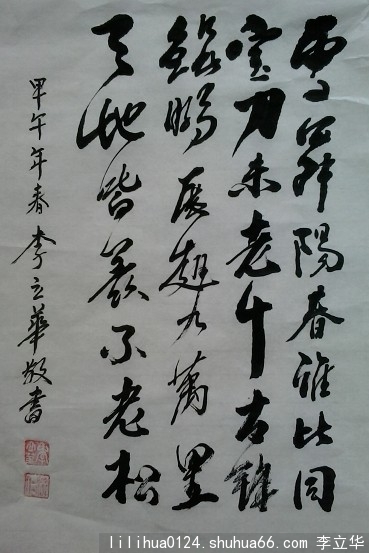 雪舞陽春誰比同
寶刀未老千古
鯤鵬展翅九萬里
天地皆羨不老松
甲午年春 李立華敬書
lilihua0124.shuhua66.com 李立华